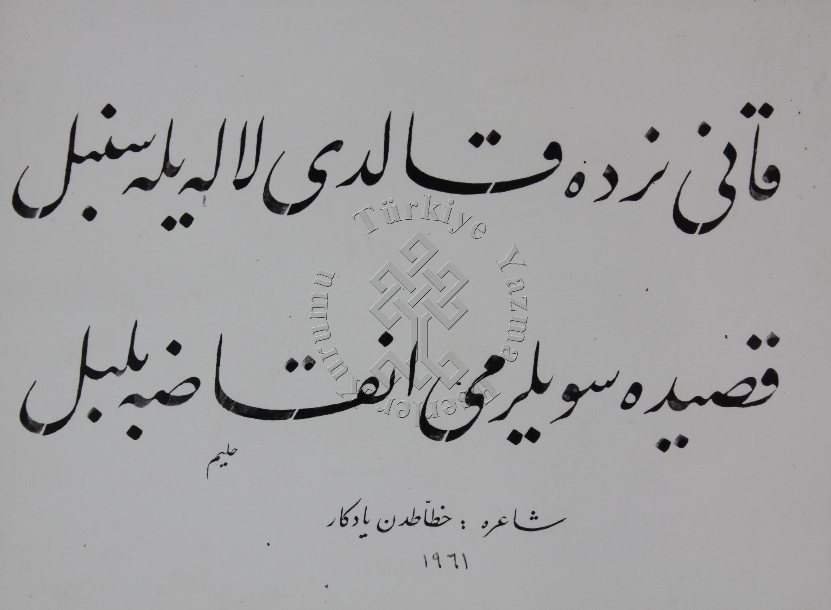 قانی نرده قالدی لاله یله سنبل
قصیده سویلرمی انقاضه بلبل
حلیم
شاعره : خطاطدن یادکار
١٩٦١
Türkiye Yazma Eserler Kurumu